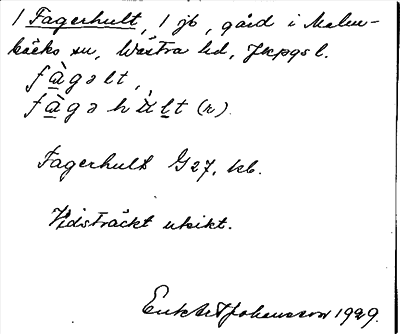 1 Fagerhult, 1 jb, gård i Malm-
bäcks sn, Västra hd, Jkpgs l.
fàgəlt,
fàgəhùlt (r).
Fagerhult G27, kb.
Vidsträckt utsikt.
Johansson 1929.